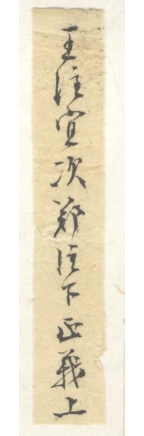 王注宜次郑注下正義上